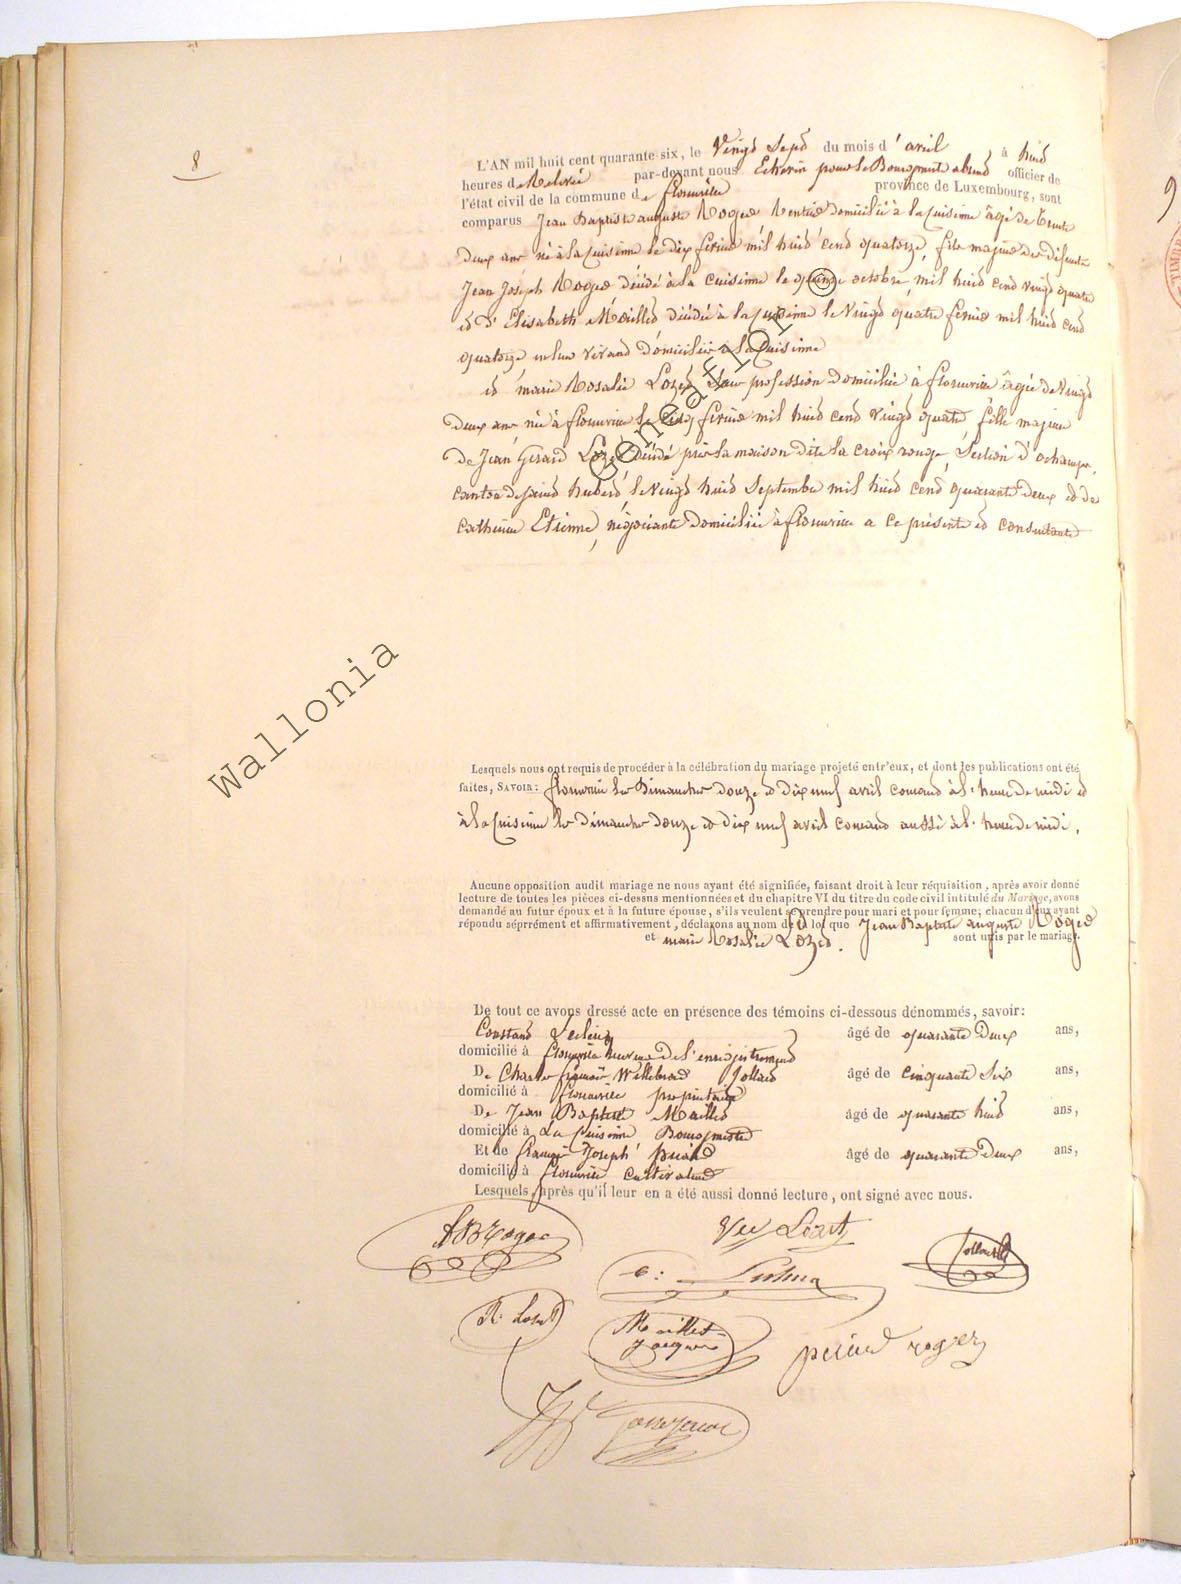 8
L'AN mil huit cent quarante-six, le Vingt Sept du mois d'avril à huit
heures de Relevée par-devant nous Echevin pour le Bourgmestre absent officier de
l'état civil de la commune de florenville province de Luxembourg, sont
comparus Jean Baptiste auguste Roger Rentier domicilié à la Cuisinne âgé de trente
deux ans né à la Cuisinne le dix fevrier mil huit cent quatorze, fils majeur des défunts
Jean Joseph Roger décédé à la Cuisinne le quinze octobre mil huit cent vingt quatre
et d' Elisabeth Maillet décédée à la Cuisinne le Vingt quatre fevrier mil huit cent
quatorze en leur vivant domiciliés a la Cuisinne
et marie Rosalie Lozet sans profession domiciliée à florenville âgée de Vingt
deux ans née à florenville le cinq fevrier mil huit cent Vingt quatre fille majeure
de Jean Gerard Lozet décédé près la maison dite la croix rouge, Section d'ochamps,
canton de saint hubert, le Vingt huit Septembre mil huit cent quarante deux et de
catherine Etienne, négociante domiciliée à florenville a ce présente et consentante
Lesquels nous ont requis de procéder à la célébration du mariage projeté entr'eux, et dont les publications ont été
faites, SAVOIR: florenville les Dimanches douze et dix neuf avril courant à l'heure de midi et
à la Cuisinne les dimanches douze et dix neuf avril courant aussi à l'heure de midi.
Aucune opposition audit mariage ne nous ayant été signifiée, faisant droit à leur réquisition, après avoir donné
lecture de toutes les pièces ci-dessus mentionnées et du chapitre VI du titre du code civil intitulé du Mariage, avons
demandé au futur époux et à la future épouse, s'ils veulent se prendre pour mari et pour femme; chacun d'eux ayant
répondu séprrément et affirmativement, déclarons au nom de la loi que Jean Baptiste auguste Roger
et marie Rosalie Lozet. sont unis par le mariage.
De tout ce avons dressé acte en présence des témoins ci-dessous dénommés, savoir:
Constant âgé de quarante Deux ans,
domicilié à florenville receveur de l'enregistrement
De Charles françois Willebrord Jollard âgé de cinquante Six ans,
domicilié à florenville propriétaire
De Jean Baptiste Maillet âgé de quarante huit ans,
domicilié à La Cuisinne Bourgmestre
Et de françois Joseph âgé de quarante Deux ans,
domicilié à florenville cultivateur
Lesquels, après qu'il leur en a été aussi donné lecture, ont signé avec nous.
Roger Vve Lozet
R. Lozet Maillet roger
9
Wallonia
Geneaflor ©